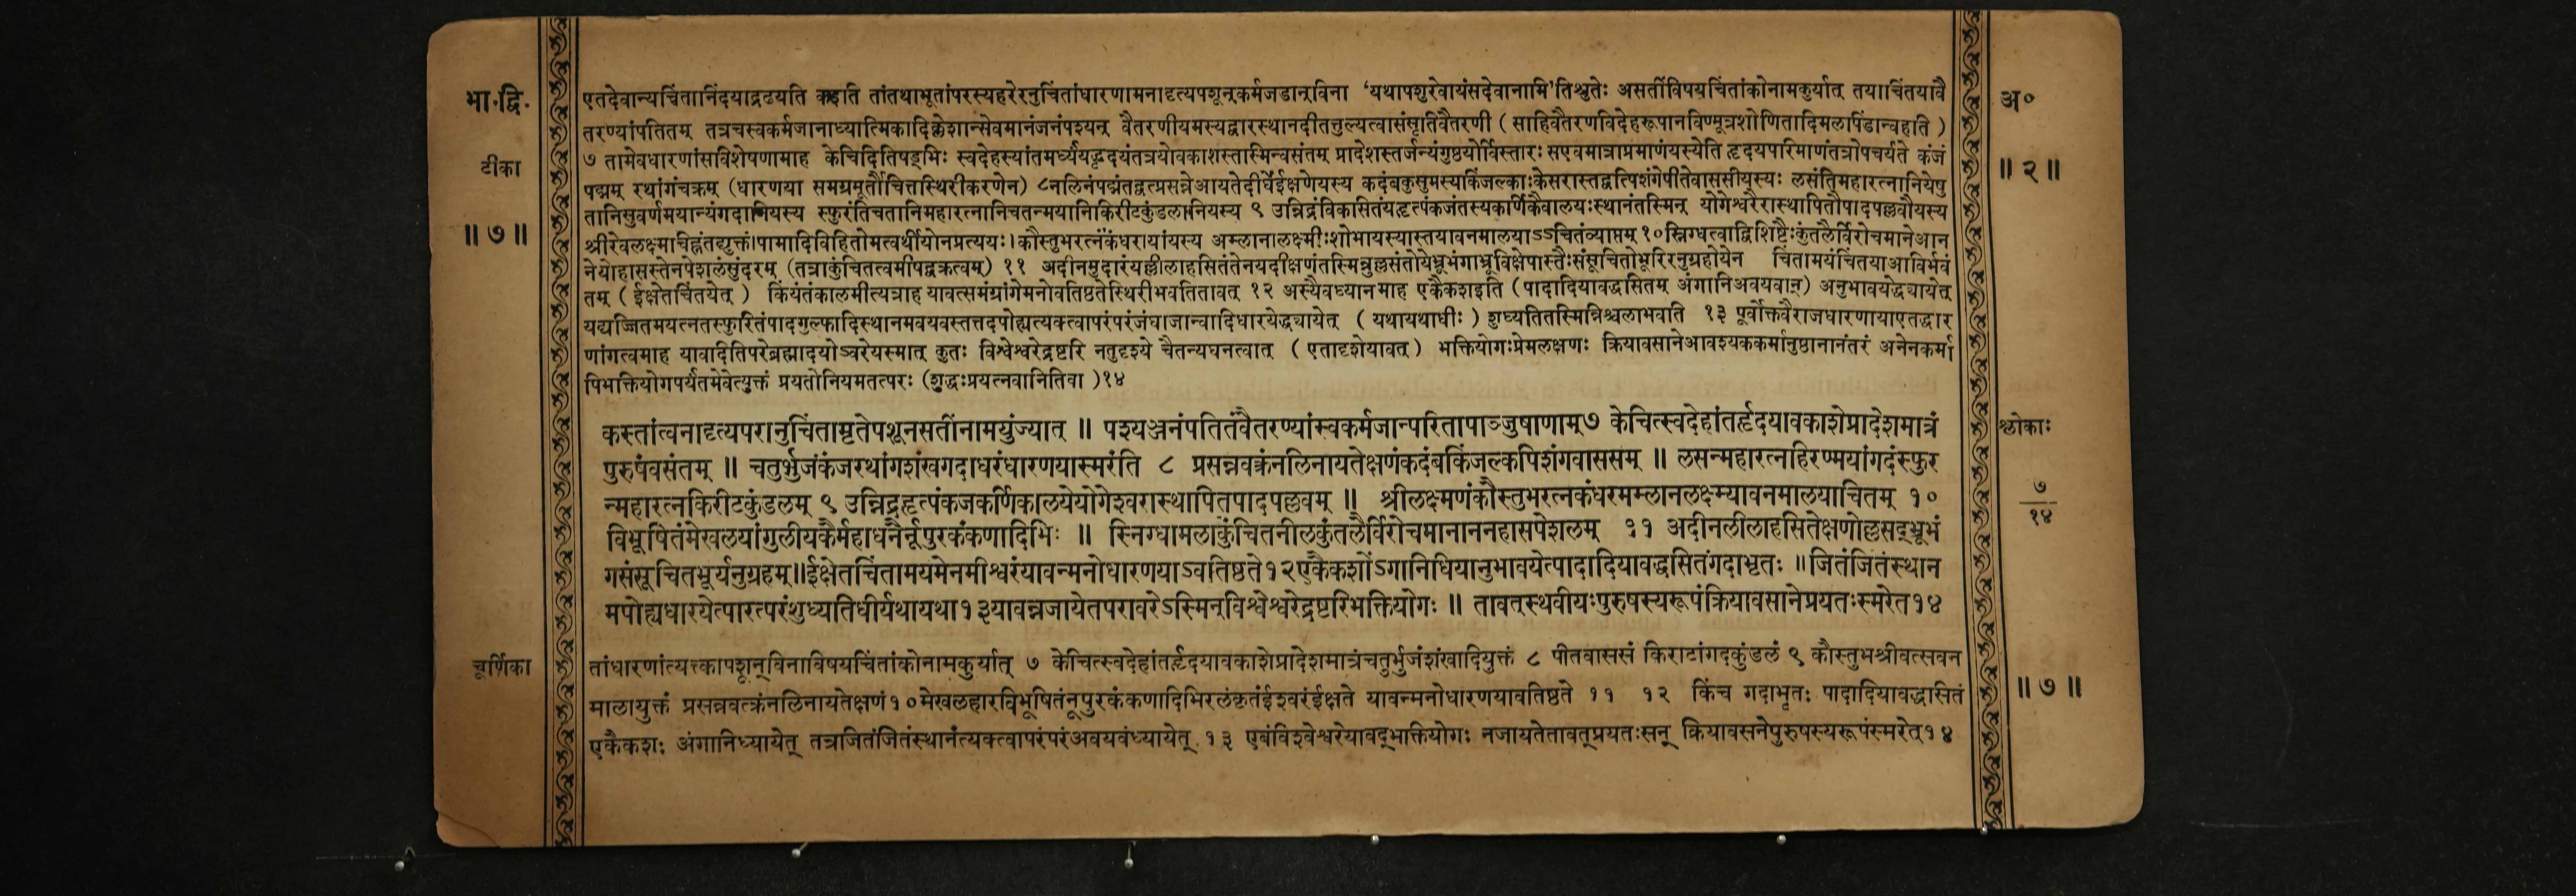 भा.द्वि.
टीका
॥ ७ ॥
एतदेवान्यचिंतानिंदयाद्रढयति कइति तांतथाभूतांपरस्यहरेरनुचिंतांधारणामनादृत्यपशून्कर्मजडान्विना ‘यथापशुरेवायंसदेवानामि’तिश्रुतेः असतींविषयचिंतांकोनामकुर्यात् तयाचिंतयावै
तरण्यांपतितम् तत्रचस्वकर्मजानाध्यात्मिकादिक्लेशान्सेवमानंजनंपश्यन् वैतरणीयमस्यद्वारस्थानदीतत्तुल्यत्वासंसृतिर्वैतरणी ( साहिवैतरणविदेहरूपानविण्मूत्रशोणितादिमलपिंडान्वहति )
७ तामेवधारणांसविशेषणामाह केचिदितिषड्भिः स्वदेहस्यांतमर्ध्येयद्धृदयंतत्रयोवकाशस्तास्मिन्वसंतम् प्रादेशस्तर्जन्यंगुष्ठयोर्विस्तारः सएवमात्राप्रमाणंयस्येति हृदयपरिमाणंतत्रोपचर्यते कंजं
पद्मम् रथांगंचक्रम् (धारणया समग्रमूर्तौचित्तस्थिरीकरणेन) ८नलिनंपद्मंतद्वत्प्रसन्नेआयतेदीर्घेईक्षणेयस्य कदंबकुसुमस्यकिंजल्काःकेसरास्तद्वत्पिशंगेपीतेवाससीयस्यः लसंतिमहारत्नानियेषु
तानिसुवर्णमयान्यंगदानियस्य स्फुरंतिचतानिमहारत्नानिचतन्मयानिकिरीटकुंडलानियस्य ९ उन्निद्रंविकासितंयद्धृत्पंकजंतस्यकर्णिकैवालयःस्थानंतस्मिन् योगेश्वरैरास्थापितौपादपल्लवौयस्य
श्रीरेवलक्ष्माचिह्नंतद्युक्तं।पामादिविहितोमत्वर्थीयोनप्रत्ययः।कौस्तुभरत्नंकंधरायांयस्य अम्लानालक्ष्मीःशोभायस्यास्तयावनमालयाऽऽचितंव्याप्तम् १०स्निग्धत्वाद्विशिष्टैःकुंतलैर्विरोचमानेआन
नेयोहासस्तेनपेशलंसुंदरम् (तत्राकुंचितत्वमीषद्वक्रत्वम्) ११ अदीनमुदारंयल्लीलाहसितंतेनयदीक्षणंतस्मिन्नुल्लसंतोयेभ्रूभंगाभ्रूविक्षेपास्तैःसंसूचितोभूरिरनुग्रहोयेन चिंतामयंचिंतयाआविर्भवं
तम् ( ईक्षेतचिंतयेत् ) कियंतंकालमीत्यत्राह यावत्समंग्रांगेमनोवतिष्ठतेस्थिरीभवतितावत् १२ अस्यैवध्यानमाह एकैकशइति (पादादियावद्धसितम् अंगानिअवयवान्) अनुभावयेद्ध्यायेत्
यद्यज्जितमयत्नतस्फुरितंपादगुल्फादिस्थानमवयवस्तत्तदपोह्यत्यक्त्वापरंपरंजंघाजान्वादिधारयेद्ध्यायेत् ( यथायथाधीः ) शुध्यतितस्मिन्निश्चलाभवति १३ पूर्वोक्तवैराजधारणायाएतद्धार
णांगत्वमाह यावादितिपरेब्रह्मादयोऽवरेयस्मात् कुतः विश्वेश्वरेद्रष्टरि नतुदृश्ये चैतन्यघनत्वात् ( एतादृशेयावत् ) भक्तियोगःप्रेमलक्षणः क्रियावसानेआवश्यककर्मानुष्ठानानंतरं अनेनकर्मा
पिभक्तियोगपर्यंतमेवेत्युक्तं प्रयतोनियमतत्परः (शुद्धःप्रयत्नवानितिवा )१४
कस्तांत्वनादृत्यपरानुचिंतामृतेपशूनसतींनामयुंज्यात् ॥ पश्यञ्जनंपतितंवैतरण्यांस्वकर्मजान्परितापाञ्जुषाणाम्७ केचित्स्वदेहांतर्हृदयावकाशेप्रादेशमात्रं
पुरुषंवसंतम् ॥ चतुर्भुजंकंजरथांगशंखगदाधरंधारणयास्मरंति ८ प्रसन्नवक्त्रंनलिनायतेक्षणंकदंबकिंजल्कपिशंगवाससम् ॥ लसन्महारत्नहिरण्मयांगदंस्फुर
न्महारत्नकिरीटकुंडलम् ९ उन्निद्रहृत्पंकजकर्णिकालयेयोगेश्वरास्थापितपादपल्लवम् ॥ श्रीलक्ष्मणंकौस्तुभरत्नकंधरमम्लानलक्ष्म्यावनमालयाचितम् १०
विभूषितंमेखलयांगुलीयकैर्महाधनैर्नूपुरकंकणादिभिः ॥ स्निग्धामलाकुंचितनीलकुंतलैर्विरोचमानाननहासपेशलम् ११ अदीनलीलाहसितेक्षणोल्लसद्भ्रूभं
गसंसूचितभूर्यनुग्रहम्॥ईक्षेतचिंतामयमेनमीश्वरंयावन्मनोधारणयाऽवतिष्ठते१२एकैकशोंऽगानिधियानुभावयेत्पादादियावद्धसितंगदाभृतः ॥जितंजितंस्थान
मपोह्यधारयेत्पारत्परंशुध्यतिधीर्यथायथा१३यावन्नजायेतपरावरेऽस्मिन्विश्वेश्वरेद्रष्टरिभक्तियोगः ॥ तावत्स्थवीयःपुरुषस्यरूपंक्रियावसानेप्रयतःस्मरेत१४
चूर्णिका
तांधारणांत्यक्त्कापशून्विनाविषयचिंतांकोनामकुर्यात् ७ केचित्स्वदेहांतर्हृदयावकाशेप्रादेशमात्रंचतुर्भुजंशंखादियुक्तं ८ पीतवाससं किराटांगदकुंडलं ९ कौस्तुभश्रीवत्सवन
मालायुक्तं प्रसन्नवत्क्रंनलिनायतेक्षणं१०मेखलहारविभूषितंनूपुरकंकणादिभिरलंकृतंईश्वरंईक्षते यावन्मनोधारणयावतिष्ठते ११ १२ किंच गदाभृतः पादादियावद्धासितं
एकैकशः अंगानिध्यायेत् तत्रजितंजितंस्थानंत्यक्त्वापरंपरंअवयवंध्यायेत् १३ एवंविश्वेश्वरेयावद्भक्तियोगः नजायतेतावत्प्रयतःसन् क्रियावसनेपुरुषस्यरूपंस्मरेत्१४
अ०
॥ २ ॥
श्लोकाः
७
१४
॥ ७ ॥